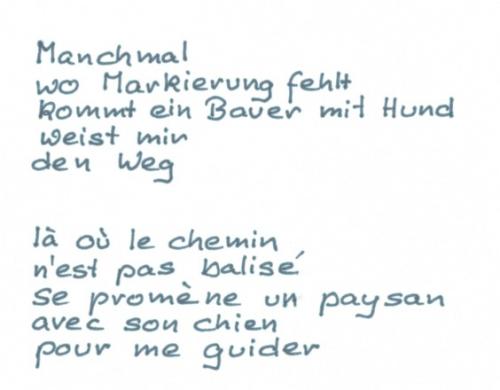 Manchmal
wo Markierung fehlt
kommt ein Bauer mit Hund
weist mir
den Weg
là où le chemin
n'est pas balisé
se promène un paysan
avec son chien
pour me guider